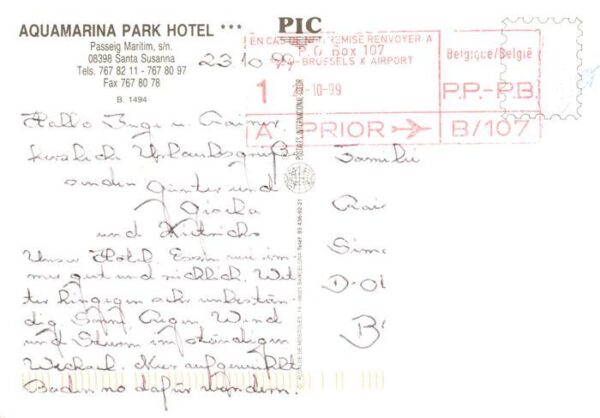 AQUAMARINA PARK HOTEL ***
Passeig Marítim, s/n.
08398 Santa Susanna
Tels. 767 82 11 - 767 80 97
Fax 767 80 78
B. 1494
PIC
EN CAS DE NON REMISE RENVOYER A
P.O. Box 107
BRUSSELS X AIRPORT
Belgique/België
1
-10-99
P.P.-P.B.
A PRIOR
B/107
23.10.99
Hallo Inge u. Rainer
herzliche Urlaubsgrüße
senden Günter und
Gisela
und
Unser Hotel. Essen wie im
mer gut und reichlich. Wet
ter hingegen sehr unbestän
dig Sonne, Regen, Wind
und Sturm im ständigen
Wechsel. Meer aufgewühlt
Baden no dafür wandern.
Familie
Rai
Sim
D-0
B